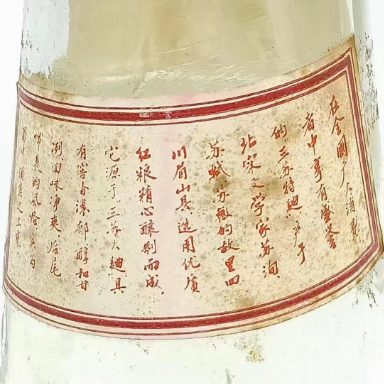 在全国广大消费
者中享有盛誉
的三苏特麯产于
北宋文学家苏洵
苏轼苏辙的故里四
川眉山县选用优质
红粮精心酿制而成
它源于三苏大麯具
有窖香浓郁醇和甘
洌回味净爽后尾
悠长的风格